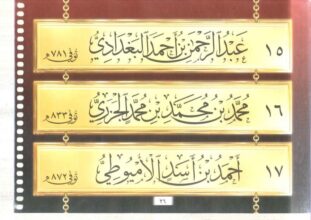 ١٥ عَبْدُ الرَّحْمٰنِ بْنُ أَحْمَدَ الْبَغْدَادِيُّ تُوُفِّيَ ٧٨١هـ
١٦ مُحَمَّدُ بْنُ مُحَمَّدِ بْنِ مُحَمَّدٍ الْجَزَرِيُّ تُوُفِّيَ ٨٣٣هـ
١٧ أَحْمَدُ بْنُ أَسَدٍ الْأُمْيُوطِيُّ تُوُفِّيَ ٨٧٢هـ
٢٦